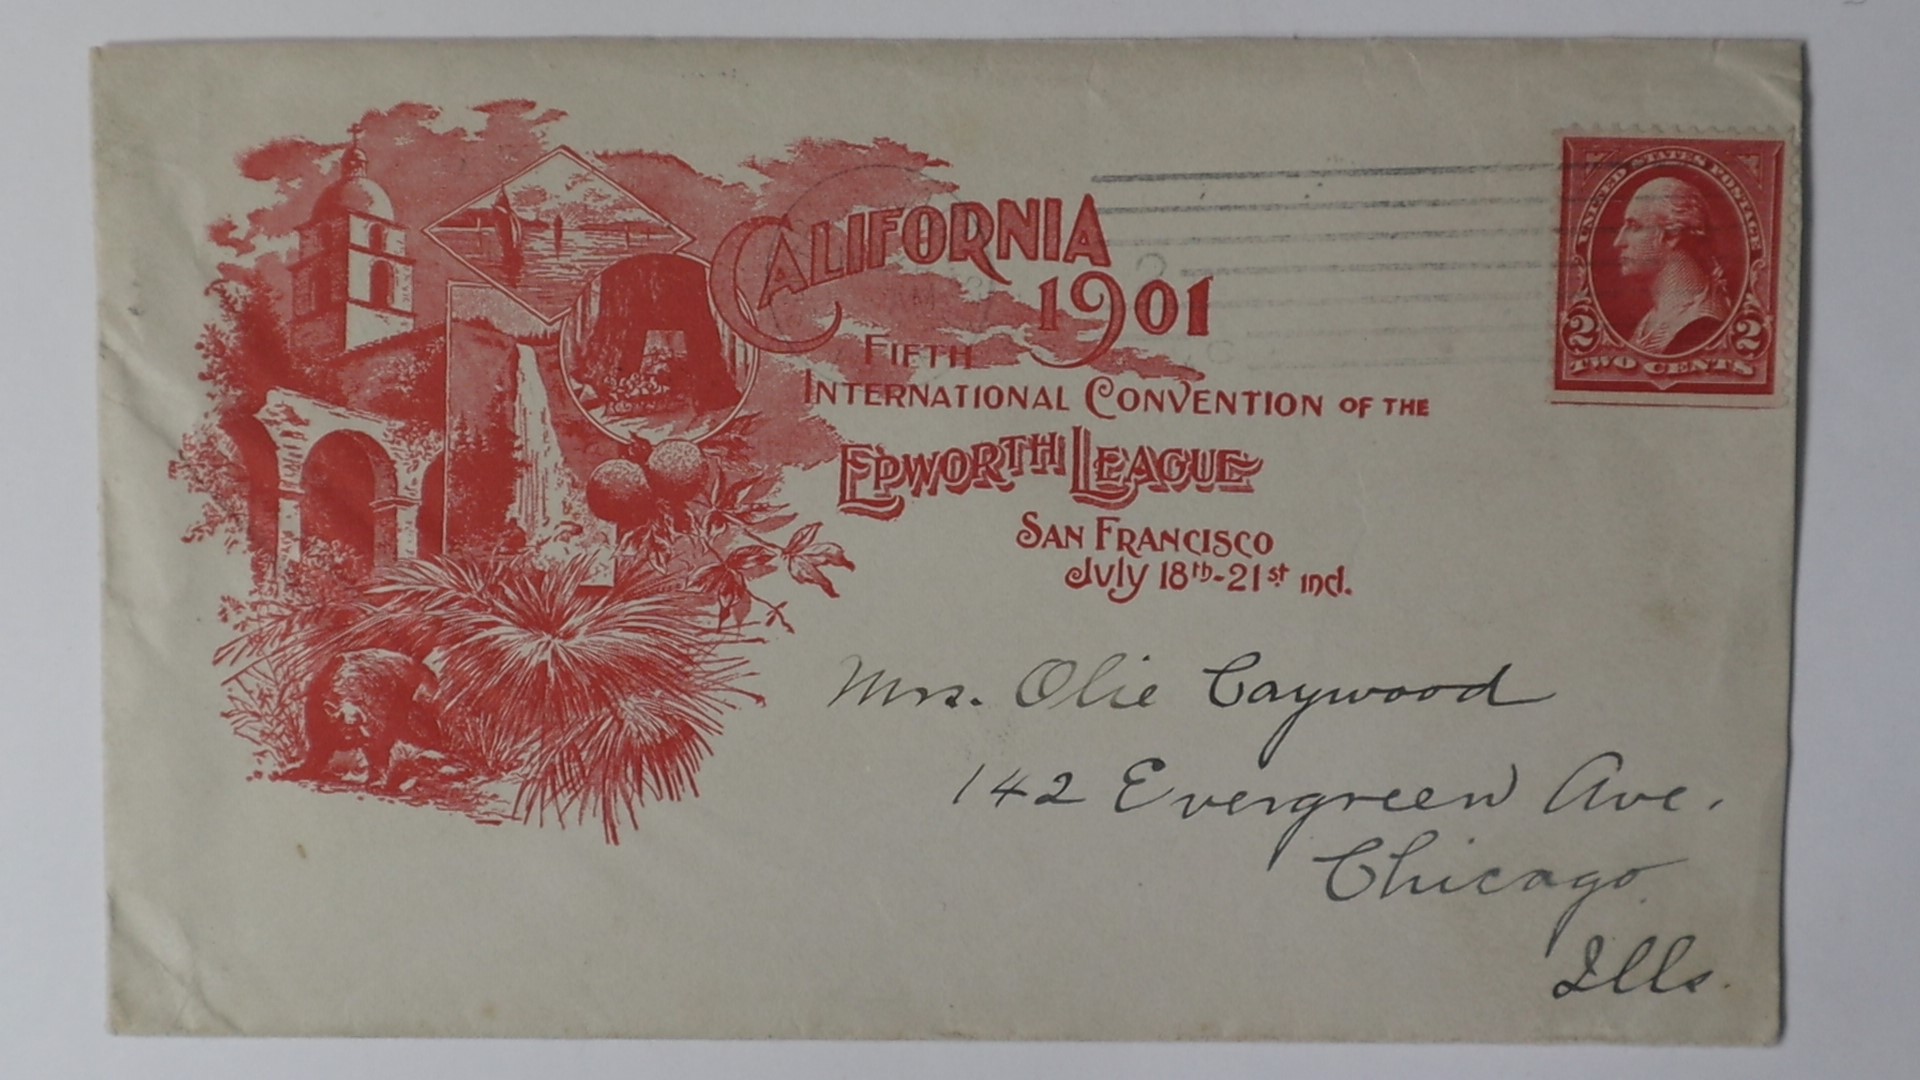 CALIFORNIA
1901
FIFTH
INTERNATIONAL CONVENTION OF THE
EPWORTH LEAGUE
SAN FRANCISCO
July 18th-21st incl.
UNITED STATES POSTAGE
2 2
TWO CENTS
Mrs. Olie Caywood
142 Evergreen Ave.
Chicago
Ills.